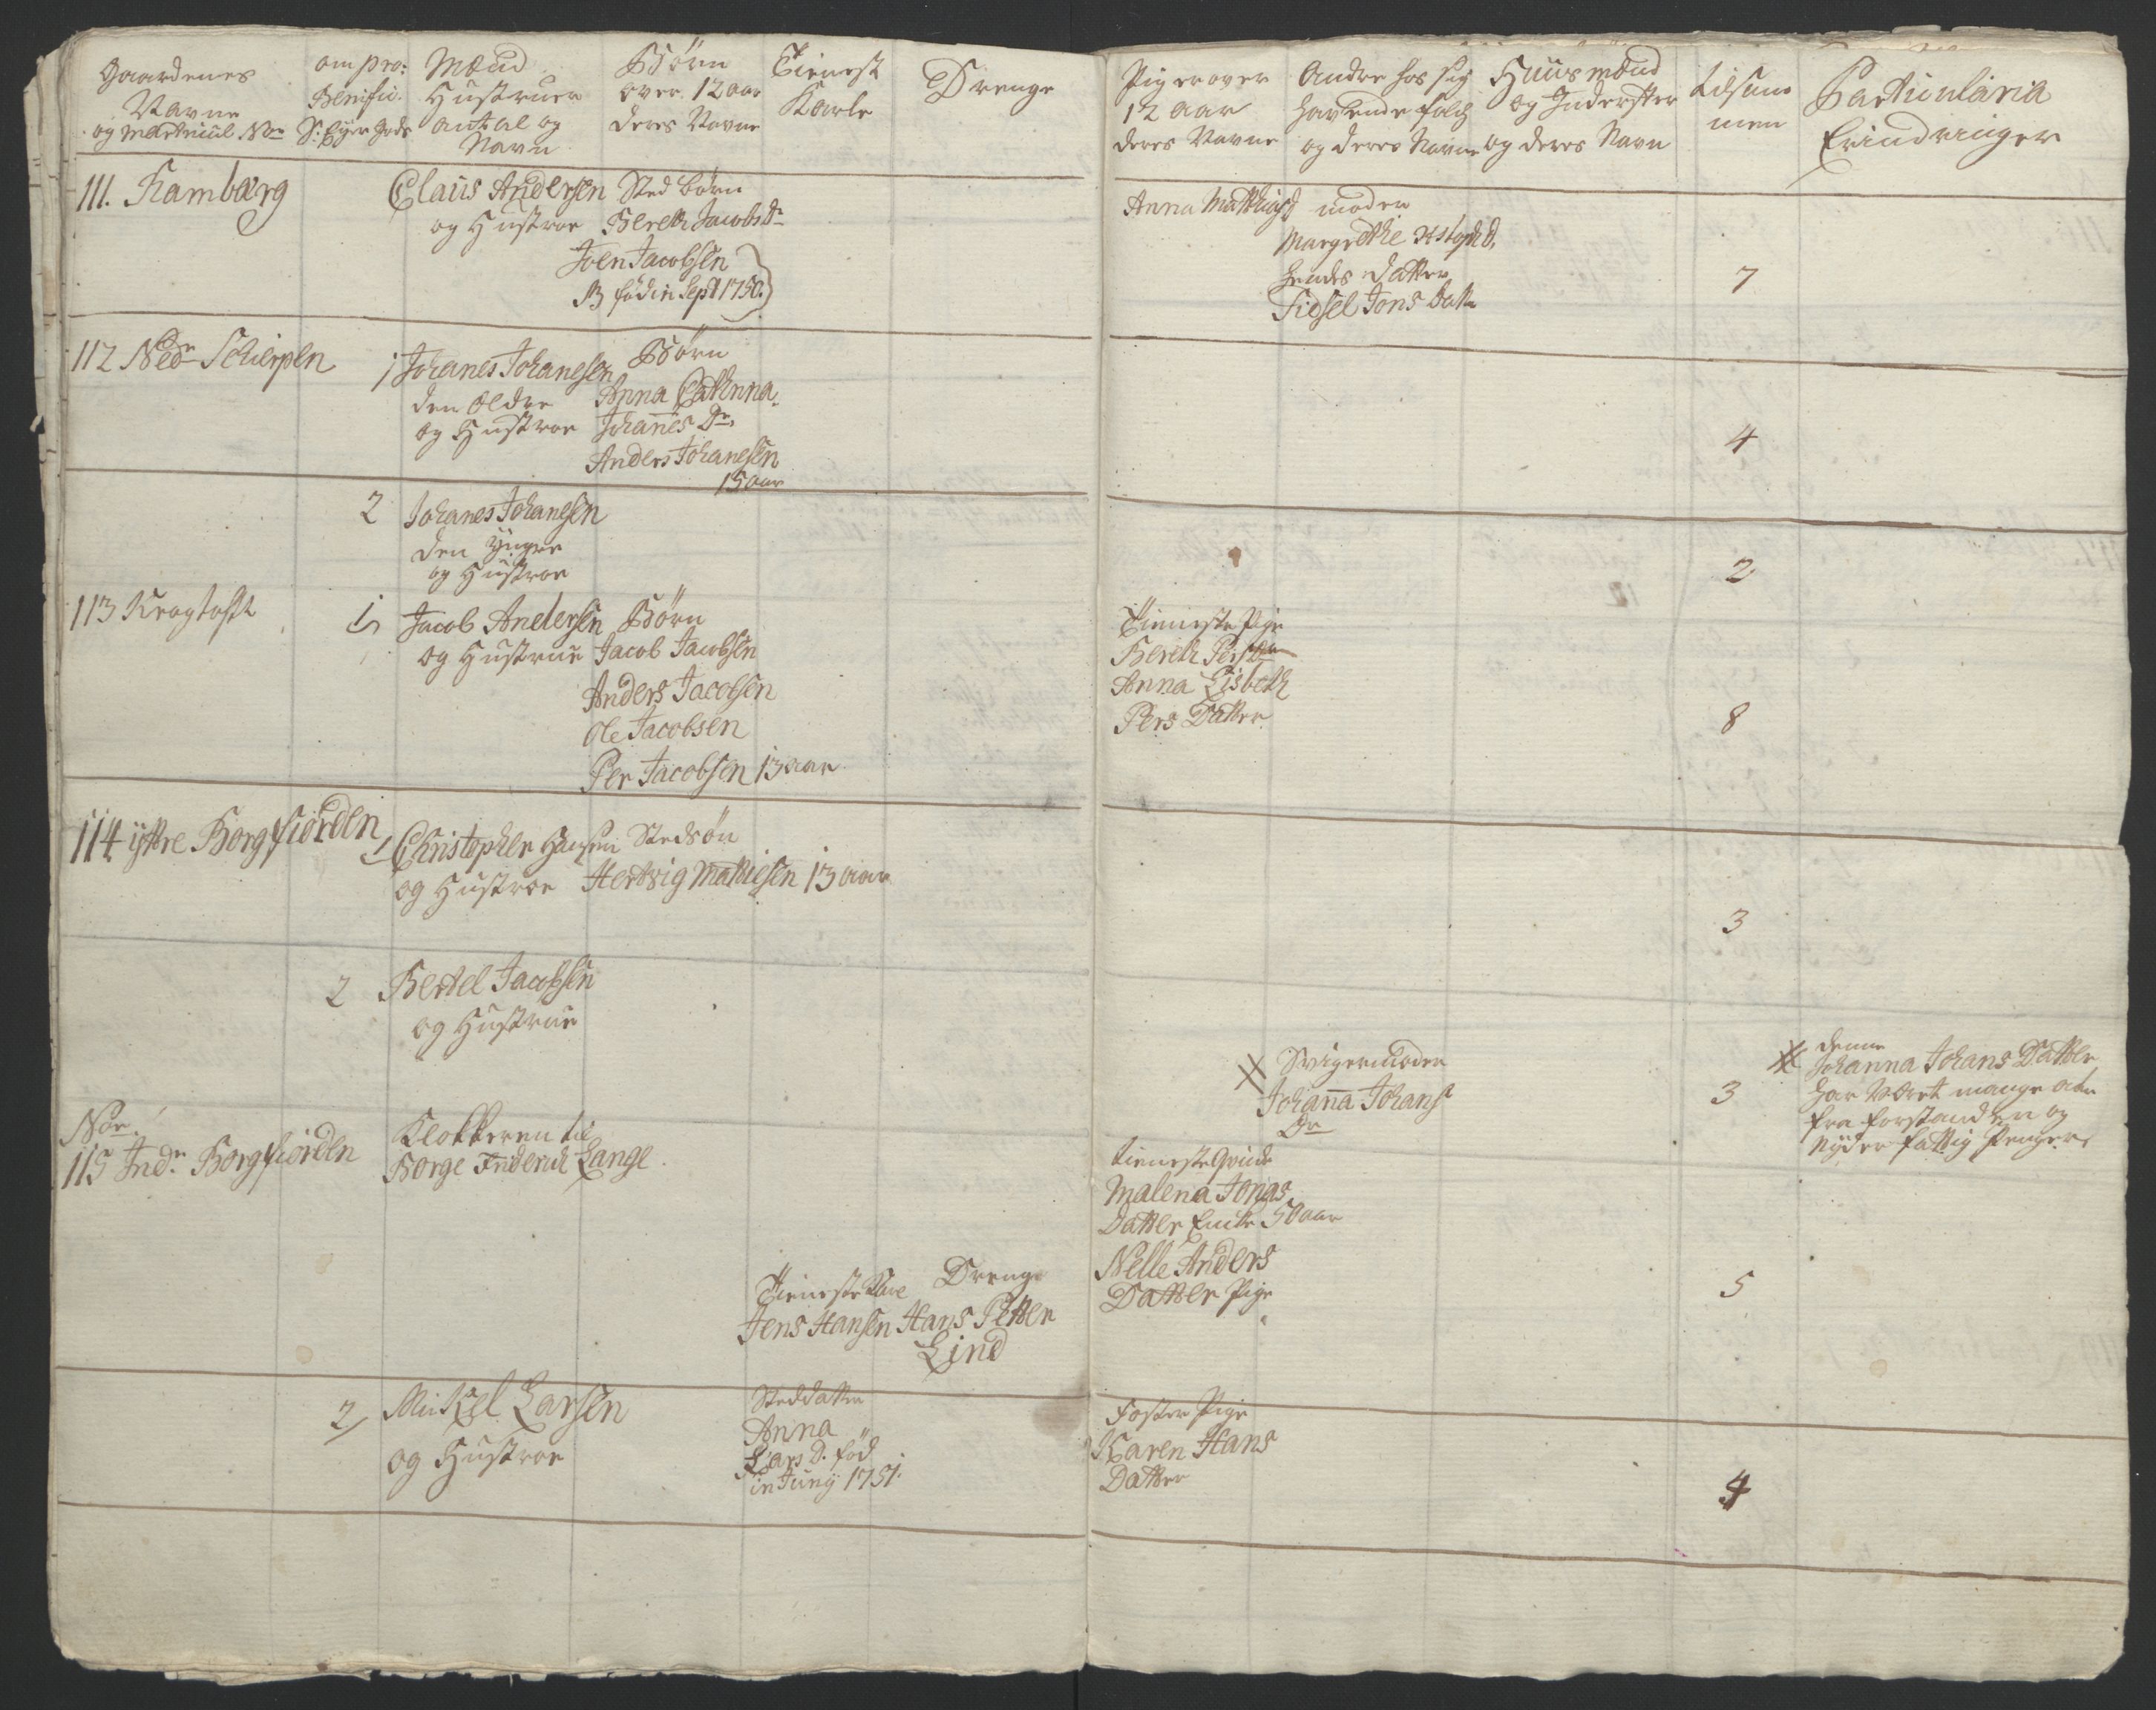 Gaardenes
Navne
og Matricul Nor
om pro:
Benific:
S: Eyer Gods
Mænd
Hustruer
antal og
Navn
Børn
over 12 aar
deres Navne
Tienest
Karle
Drenge
Piger over
12 aar
deres Navne
Andre hos sig
havende folch
og deres Navne
Huusmænd
og Inderster
og deres Navn
tilsam
men
Particularia
Erindringer
111. Hambærg
Claus Andersen
og Hustroe
Sted børn
Bereth Jacobs Dr
Joen Jacobsen
NB fød in Sept 1750.
Anna Mathias D
moder
Margrethe
hendes datter
Sidsel Jons Datr
7
112 Nedr Schierpen
1 Johanes Johanesen
den ældre
og Hustroe
Børn
Anna Cathrina
Johanes Dr
Anders Johanesen
15 aar
4
2 Johanes Johanesen
den yngre
og Hustroe
2
113 Kragtofft
1 Jacob Andersen
og Hustrue
Børn
Jacob Jacobsen
Anders Jacobsen
Ole Jacobsen
Per Jacobsen 13 aar
Tieneste Pige
Bereth Pers
Anna Lisbeth
Pers Datter
8
114 ÿttre Borgfiorden
1 Christopher Hansen
og Hustroe
Stedsøn
Hertvig Mathiesen 13 aar
3
2 Bertel Jacobsen
og Hustrue
Svigermoder
Johanna Johans
Dr
3
denne
Johanna Johans Datter
har været mange aar
fra forstanden og
nyder fattig Penger
Nor
115 Indr Borgfiorden
Klokkeren til
Borge Friderich Lange
Tieneste Karl
Jens Hansen
Dreng
Hans Petter
Lind
tieneste Qvinde
Malena Jonas
Datter Enke 50 aar
Nelle Anders
Datter Pige
5
2 Mickel Larsen
og Hustroe
Steddatter
Anna
Lars D. fød
in Junÿ 1751.
Foster Pige
Karen Hans
Datter
4